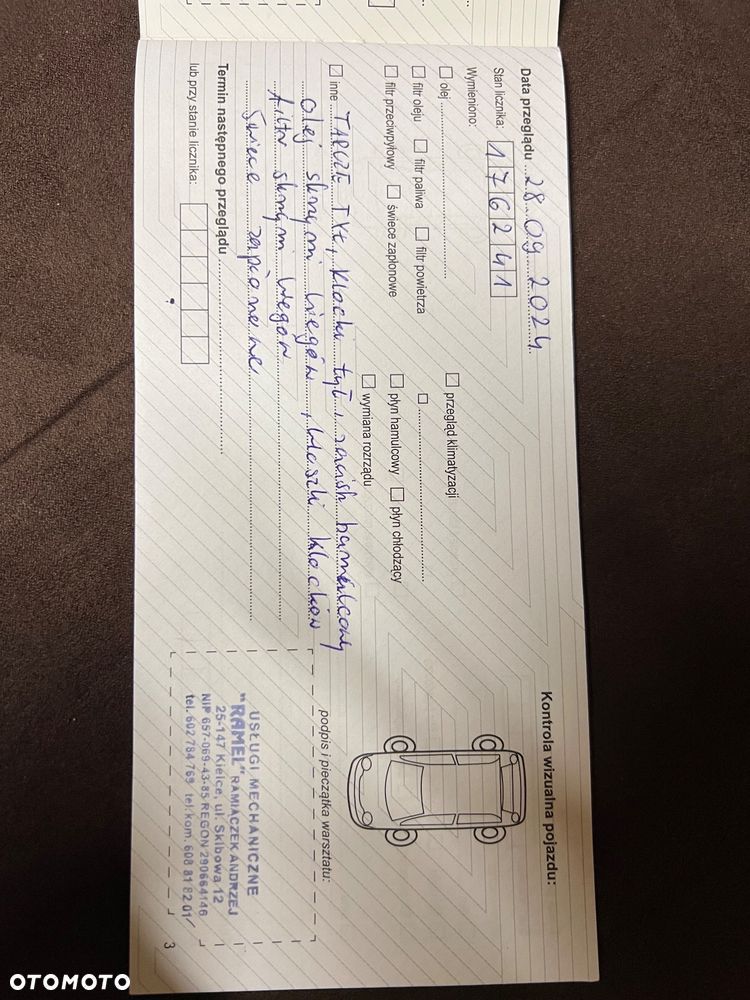 Data przeglądu 28.09.2024
Stan licznika: 176241
Wymieniono:
olej
filtr oleju filtr paliwa filtr powietrza
filtr przeciwpyłowy świece zapłonowe
przegląd klimatyzacji
płyn hamulcowy płyn chłodzący
wymiana rozrządu
inne TARCZE TYŁ, klocki tył, zacisk hamulcowy
olej skrzyni biegów, klocków
filtr skrzyni biegów
Świece zapłonowe
Termin następnego przeglądu
lub przy stanie licznika:
Kontrola wizualna pojazdu:
podpis i pieczątka warsztatu:
USŁUGI MECHANICZNE
"RAMEL" RAMIĄCZEK ANDRZEJ
25-147 Kielce, ul. Skibowa 12
NIP 657-069-43-85 REGON 290664146
tel. 602 784 769 tel. kom. 608 81 82 01
3
OTOMOTO